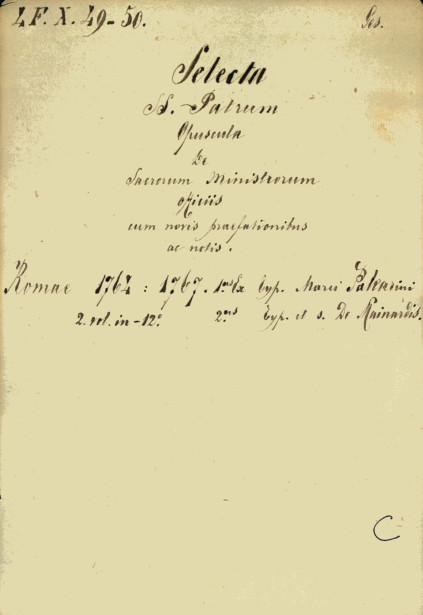 LF. X. 49-50. Ges.
Selecta
SS. Patrum
Opuscula
De
Sacrorum Ministrorum
officiis
cum novis praefationibus
ac notis.
Romae 1764 : 1767. 1us Ex Typ. Marci Palearini
2. vol. in-12° 2us Typ. et s. De Mainardis.
C